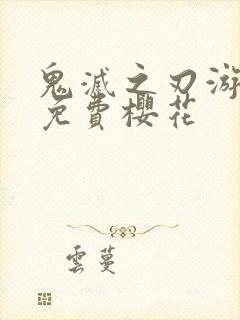 鬼滅之刃游
免費櫻花
雲蔓